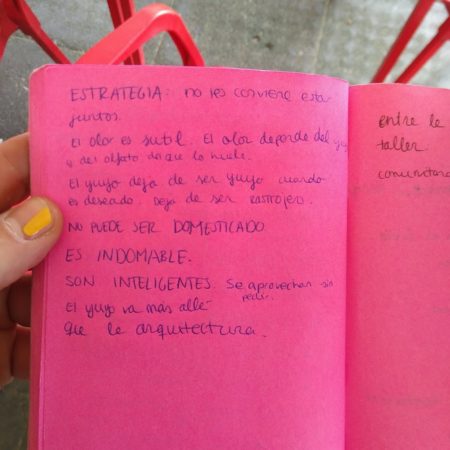 ESTRATEGIA: no les conviene estar
juntos.
El olor es sutil. El olor depende del yuyo
y del olfato de que lo huele.
El yuyo deja de ser yuyo cuando
es deseado. Deja de ser RASTROJERO.
NO PUEDE SER DOMESTICADO
ES INDOMABLE.
SON INTELIGENTES. Se aprovechan sin
pedir.
El yuyo va más allá
que la arquitectura.
entre la
taller.
comunitaria